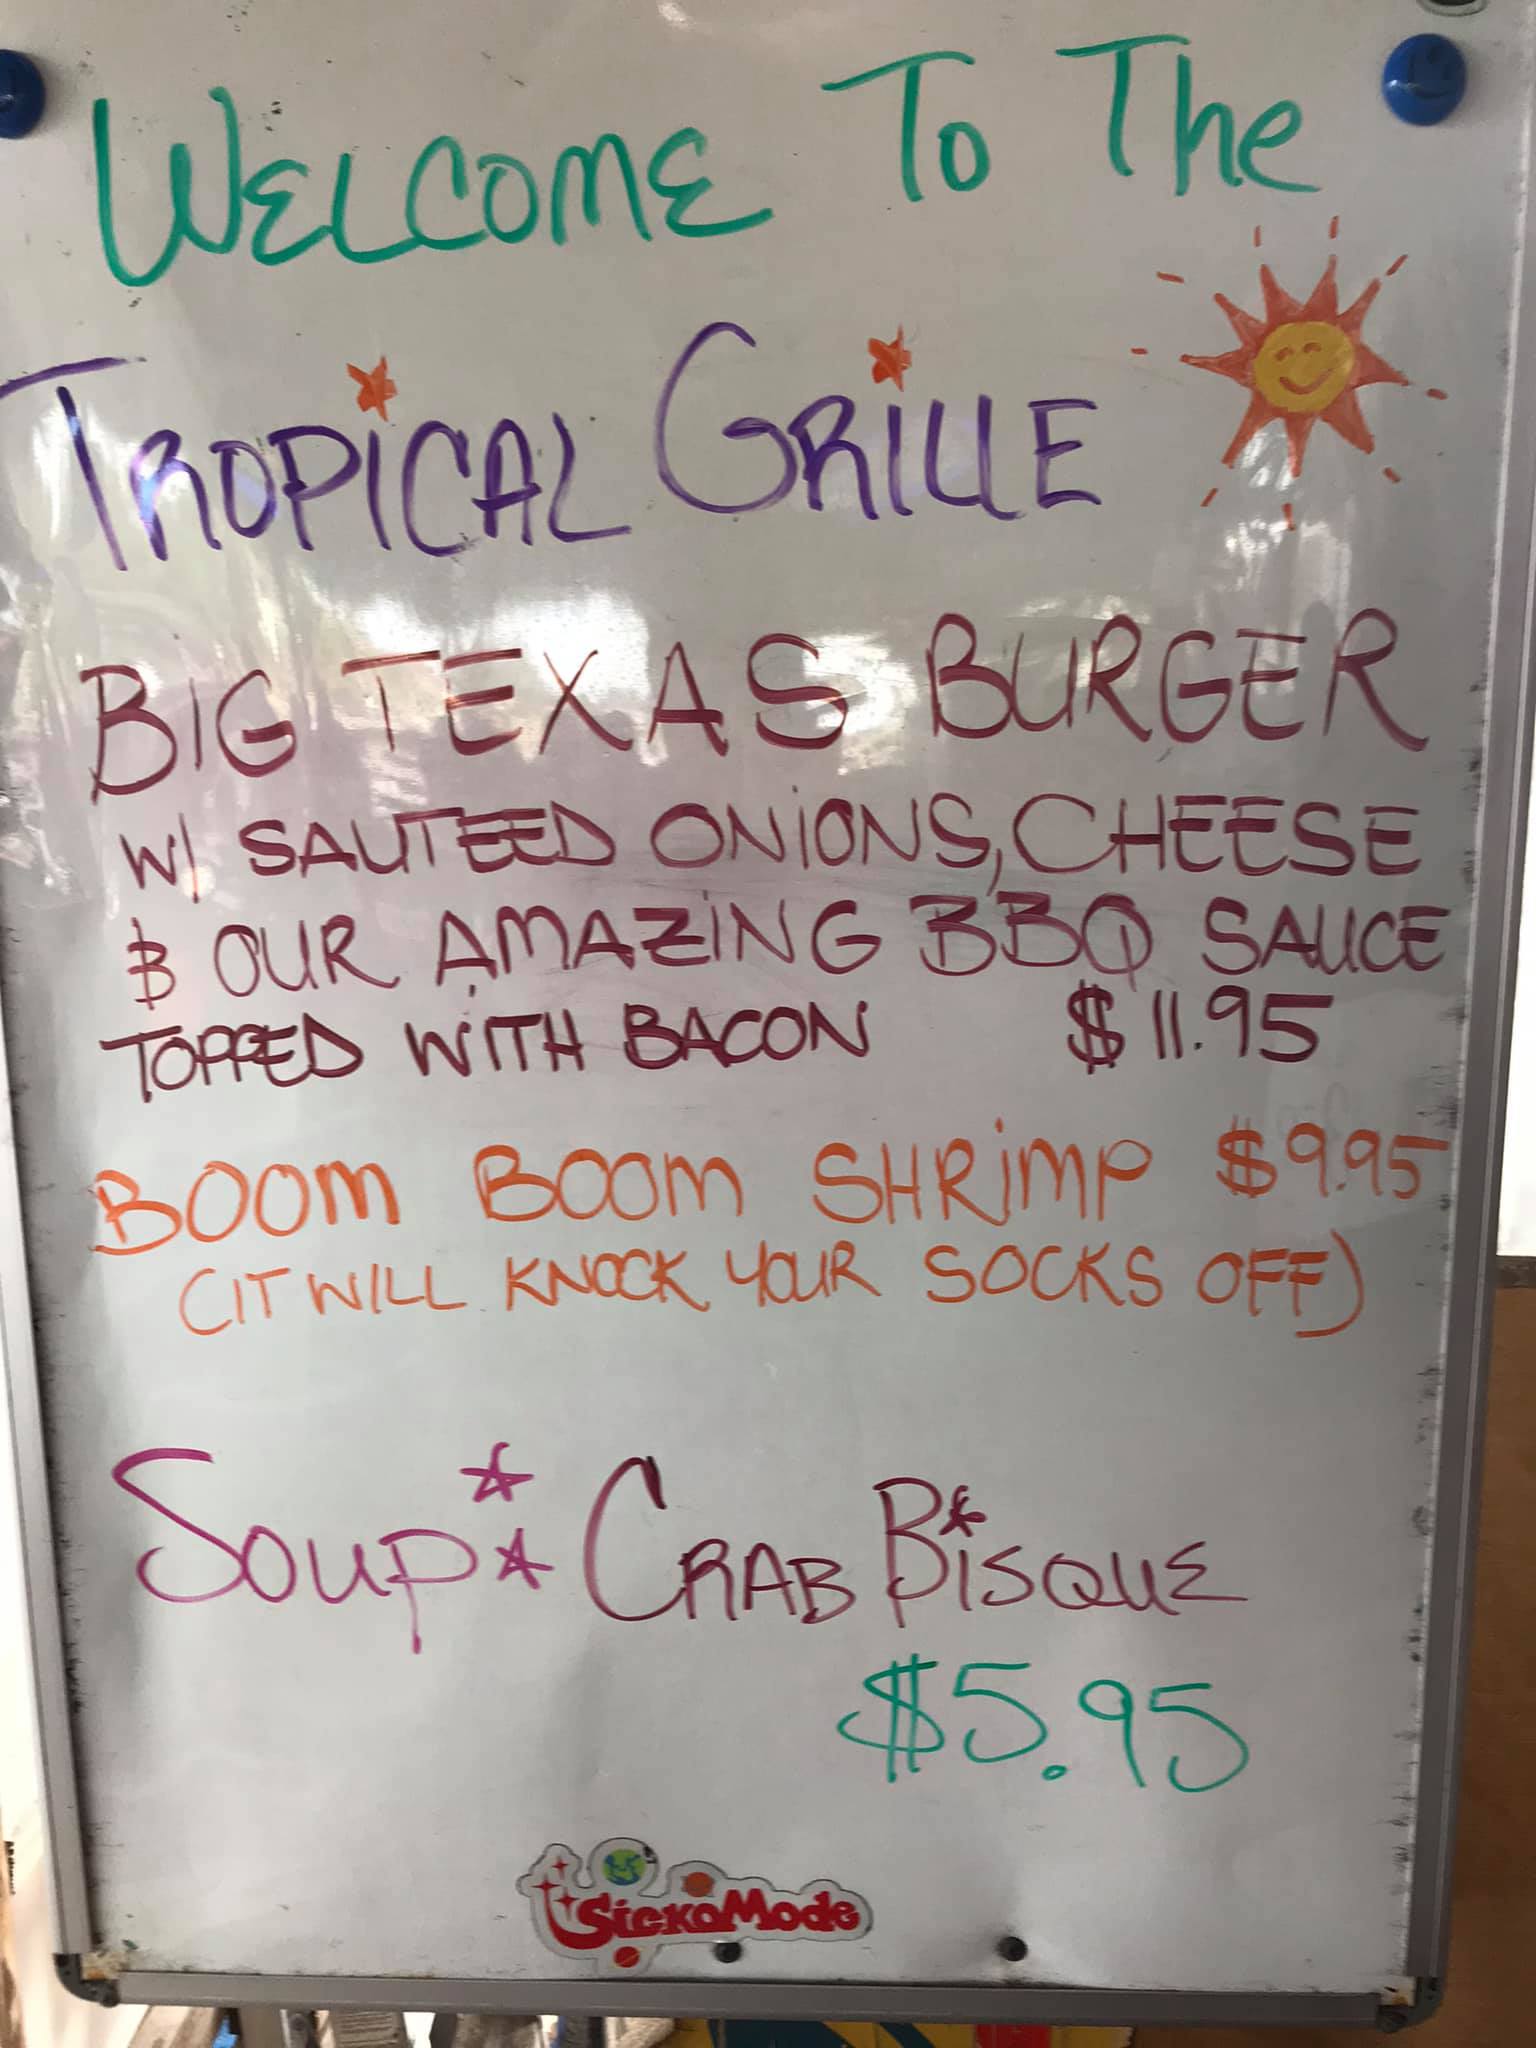 WELCOME To The
TROPICAL GRILLE
BIG TEXAS BURGER
W/ SAUTEED ONIONS, CHEESE
& OUR AMAZING BBQ SAUCE
TOPPED WITH BACON $11.95
BOOM BOOM SHRIMP $9.95
(IT WILL KNOCK YOUR SOCKS OFF)
SOUP: CRAB BISQUE
$5.95
SickoMode